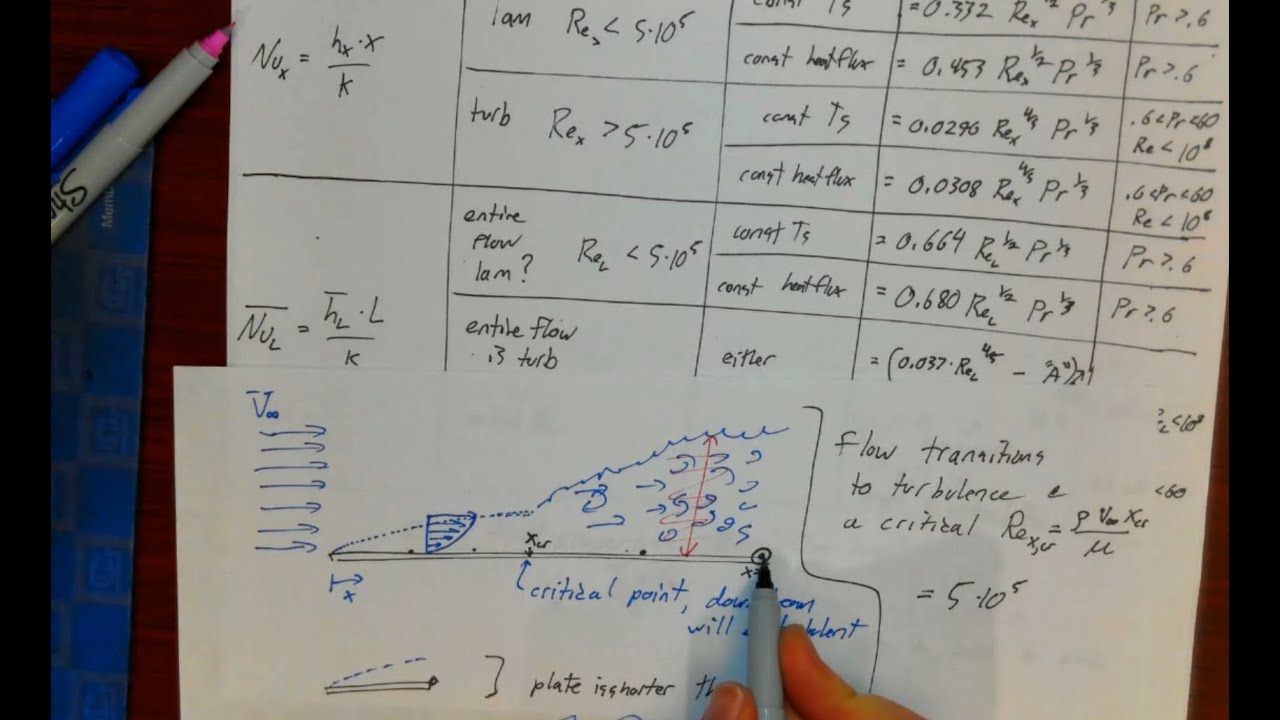 lam Re_x < 5·10^5 const T_s = 0.332 Re_x^1/2 Pr^1/3 Pr > .6
Nu_x = h_x·x / k
const heat flux = 0.453 Re_x^1/2 Pr^1/3 Pr > .6
turb Re_x > 5·10^5 const T_s = 0.0296 Re_x^4/5 Pr^1/3 .6 < Pr < 60
Re < 10^8
const heat flux = 0.0308 Re_x^4/5 Pr^1/3 .6 < Pr < 60
Re < 10^8
entire
flow
lam? Re_L < 5·10^5 const T_s = 0.664 Re_L^1/2 Pr^1/3 Pr > .6
const heat flux = 0.680 Re_L^1/2 Pr^1/3 Pr > .6
N̅u̅_L = h̅_L·L / k
entire flow
is turb either = (0.037·Re_L^4/5 - "A")
<10^8
<60
V_∞
x
x_cr
critical point,
will
Flow transitions
to turbulence @
a critical Re_x,cr = ρ V_∞ x_cr / μ
= 5·10^5
} plate is shorter
Mem